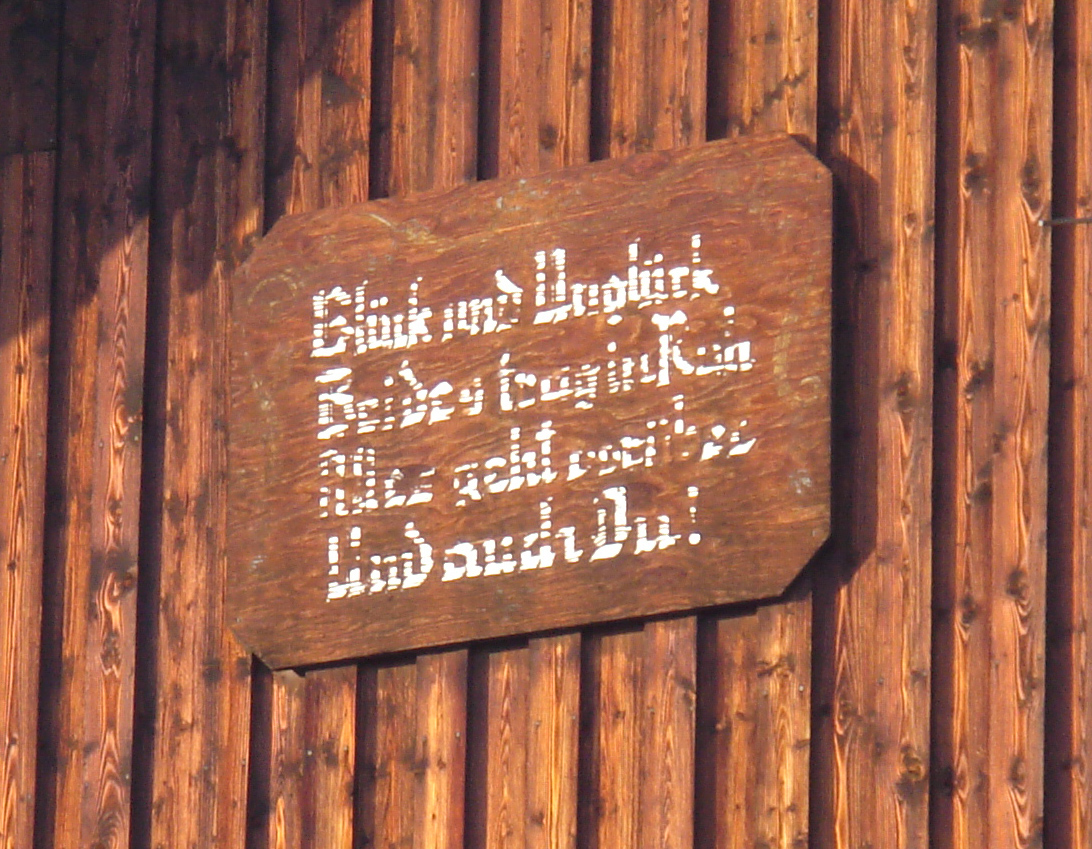 Glück und Unglück
Beides trag in Ruh
Alles geht vorüber
Und auch Du!